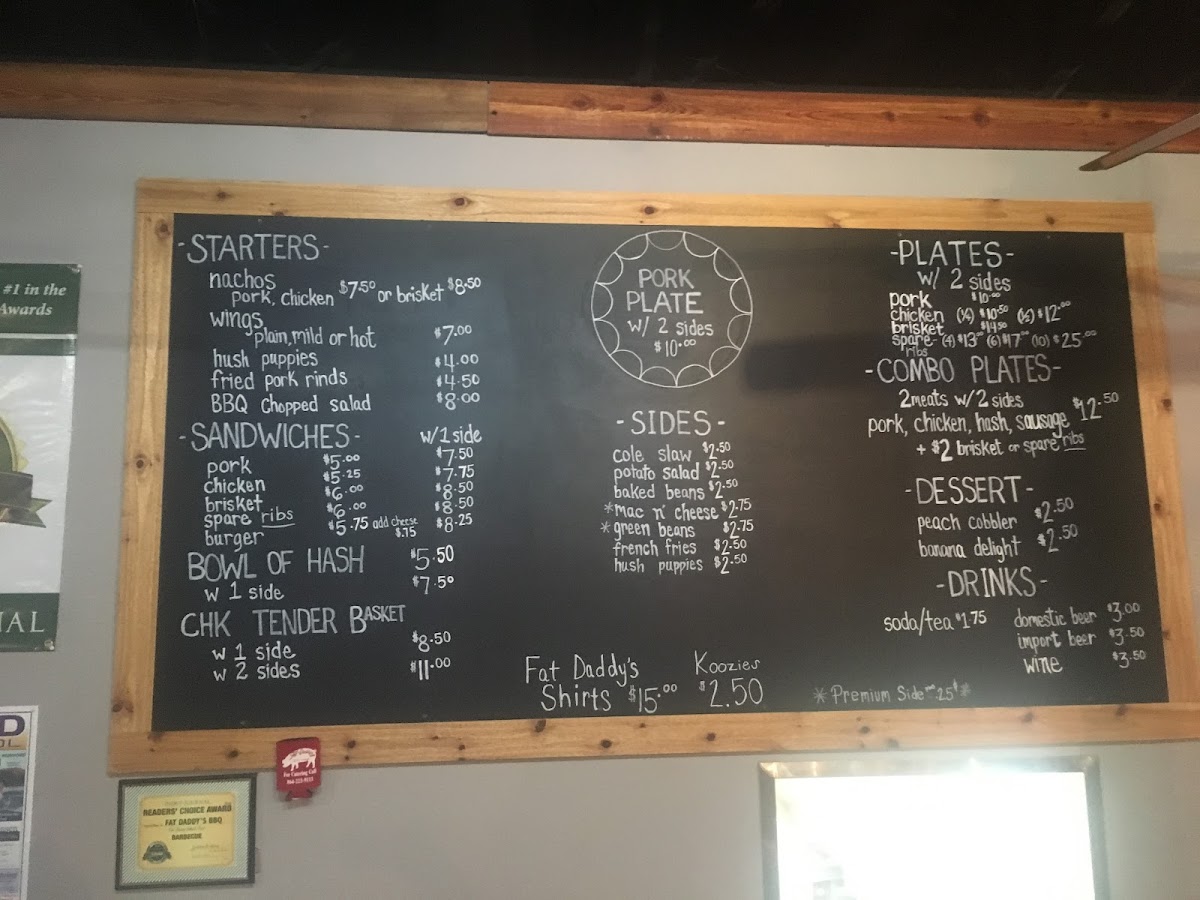 #1 in the
Awards
-STARTERS-
nachos
pork, chicken $7.50 or brisket $8.50
wings
plain, mild or hot $7.00
hush puppies $4.00
fried pork rinds $4.50
BBQ Chopped salad $8.00
-SANDWICHES- w/1 side
pork $5.00 $7.50
chicken $5.25 $7.75
brisket $6.00 $8.50
spare ribs $6.00 $8.50
burger $5.75 add cheese $.75 $8.25
BOWL OF HASH $5.50
w 1 side $7.50
CHK TENDER BASKET
w 1 side $8.50
w 2 sides $11.00
PORK
PLATE
w/ 2 sides
$10.00
-SIDES-
cole slaw $2.50
potato salad $2.50
baked beans $2.50
*mac n' cheese $2.75
*green beans $2.75
french fries $2.50
hush puppies $2.50
Fat Daddy's
Shirts $15.00
Koozies
$2.50
-PLATES-
w/ 2 sides
pork $10.00
chicken (¼) $10.50 (½) $12.00
brisket $14.50
spare- (4) $13.00 (6) $17.00 (10) $25.00
ribs
-COMBO PLATES-
2 meats w/ 2 sides
pork, chicken, hash, sausage $12.50
+ $2 brisket or spare ribs
-DESSERT-
peach cobbler $2.50
banana delight $2.50
-DRINKS-
soda/tea $1.75
domestic beer $3.00
import beer $3.50
wine $3.50
*Premium Side .25¢*
IAL
D
For Catering Call
READERS' CHOICE AWARD
FAT DADDY'S BBQ
BARBECUE